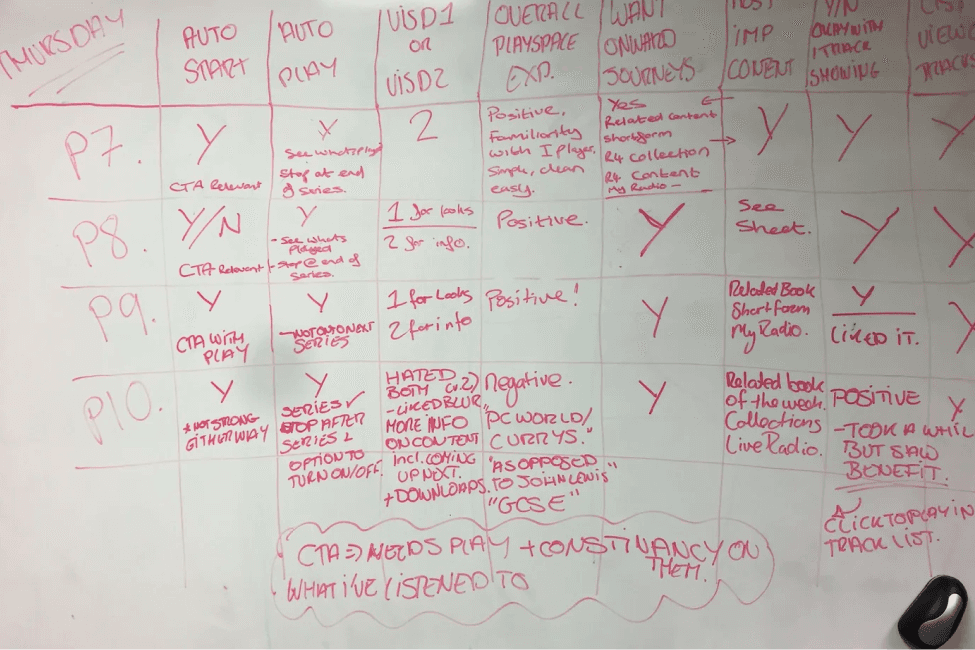 THURSDAY
AUTO
START
AUTO
PLAY
VISD1
OR
VISD2
OVERALL
PLAYSPACE
EXP.
WANT
ONWARD
JOURNEYS
IMP
CONTENT
Y/N
PLAY WITH
1 TRACK
SHOWING
VIEWED
TRACKS
P7.
Y
CTA Relevant
Y
See what's played
Stop at end
of series.
2
Positive,
Familiarity
with I Player.
Simple, clean
easy.
Yes
Related content
shortform
R4 collection
R4 content
My Radio -
Y
Y
Y
P8.
Y/N
CTA Relevant
Y
- See what's
played
- Stop @ end of
series.
1 for looks
2 for info.
Positive.
Y
See
Sheet.
Y
Y
P9.
Y
CTA WITH
PLAY
Y
- NOT ONTO NEXT
SERIES
1 for Looks
2 for info
Positive!
Y
Related Book
Short form
My Radio.
Y
LIKED IT.
Y
P10.
Y
* NOT STRONG
EITHER WAY
Y
SERIES ✓
STOP AFTER
SERIES
OPTION TO
TURN ON/OFF.
HATED
BOTH (v.2)
- LIKED BLUR
MORE INFO
ON CONTENT
incl. COMING
UP NEXT.
+ DOWNLOADS.
Negative.
"PC WORLD/
CURRYS."
"AS OPPOSED
TO JOHN LEWIS"
"GCSE"
Y
Related book
of the week.
Collections
Live Radio.
POSITIVE
- TOOK A WHIL
BUT SAW
BENEFIT.
CLICK TO PLAY IN
TRACK LIST.
Y
CTA => NEEDS PLAY + CONSTINANCY ON
THEM.
WHAT IVE LISTENED TO